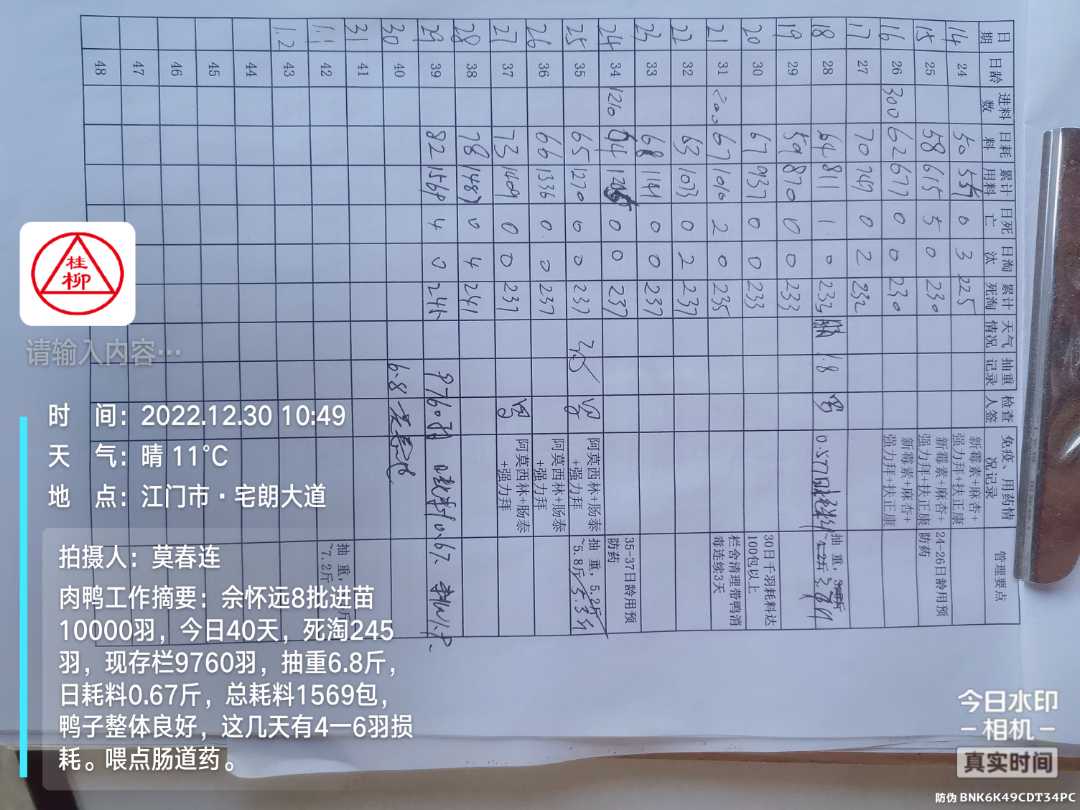 日期 日龄 进料数 日耗料 累计用料 日死亡 日淘汰 累计死淘 天气情况 抽重记录 检查人签 免疫、用药情况记录 管理要点
14 24 50 0 3 225 新霉素+麻杏+强力拜+扶正康
15 25 58 615 5 0 230 新霉素+麻杏+强力拜+扶正康 24-26日龄用预防药
16 26 300 62 677 0 0 230 新霉素+麻杏+强力拜+扶正康
17 27 70 747 0 2 232
18 28 64 811 1 0 233 1.8 抽重,
19 29 59 870 0 0 233
20 30 67 937 0 0 233 30日千羽耗料达100包以上
21 31 67 2 0 235 栏舍清理带鸭消毒连续3天
22 32 63 0 2 237
23 33 68 1141 0 0 237
24 34 1210 64 0 0 237 35-37日龄用预防药
25 35 65 1270 0 0 237 阿莫西林+肠泰+强力拜 抽重,5.2斤~5.8斤
26 36 66 1336 0 0 237 阿莫西林+肠泰+强力拜
27 37 73 1409 0 0 237 阿莫西林+肠泰+强力拜
28 38 78 1487 0 4 241
29 39 82 1569 4 0 9760羽 0.67
30 40 6.8
31 41
1.1 42 抽重, ~7.2斤
1.2 43
44
45
46
47
48
桂柳
请输入内容…
时 间：2022.12.30 10:49
天 气：晴 11℃
地 点：江门市·宅朗大道
拍摄人：莫春连
肉鸭工作摘要：佘怀远8批进苗
10000羽，今日40天，死淘245
羽，现存栏9760羽，抽重6.8斤，
日耗料0.67斤，总耗料1569包，
鸭子整体良好，这几天有4一6羽损
耗。喂点肠道药。
今日水印
相机
真实时间
防伪 BNK6K49CDT34PC